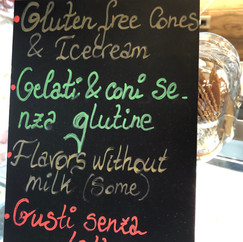 • Gluten free Cones
& Icecream
• Gelati & coni se-
nza glutine
• Flavors without
milk (Some)
• Gusti senza